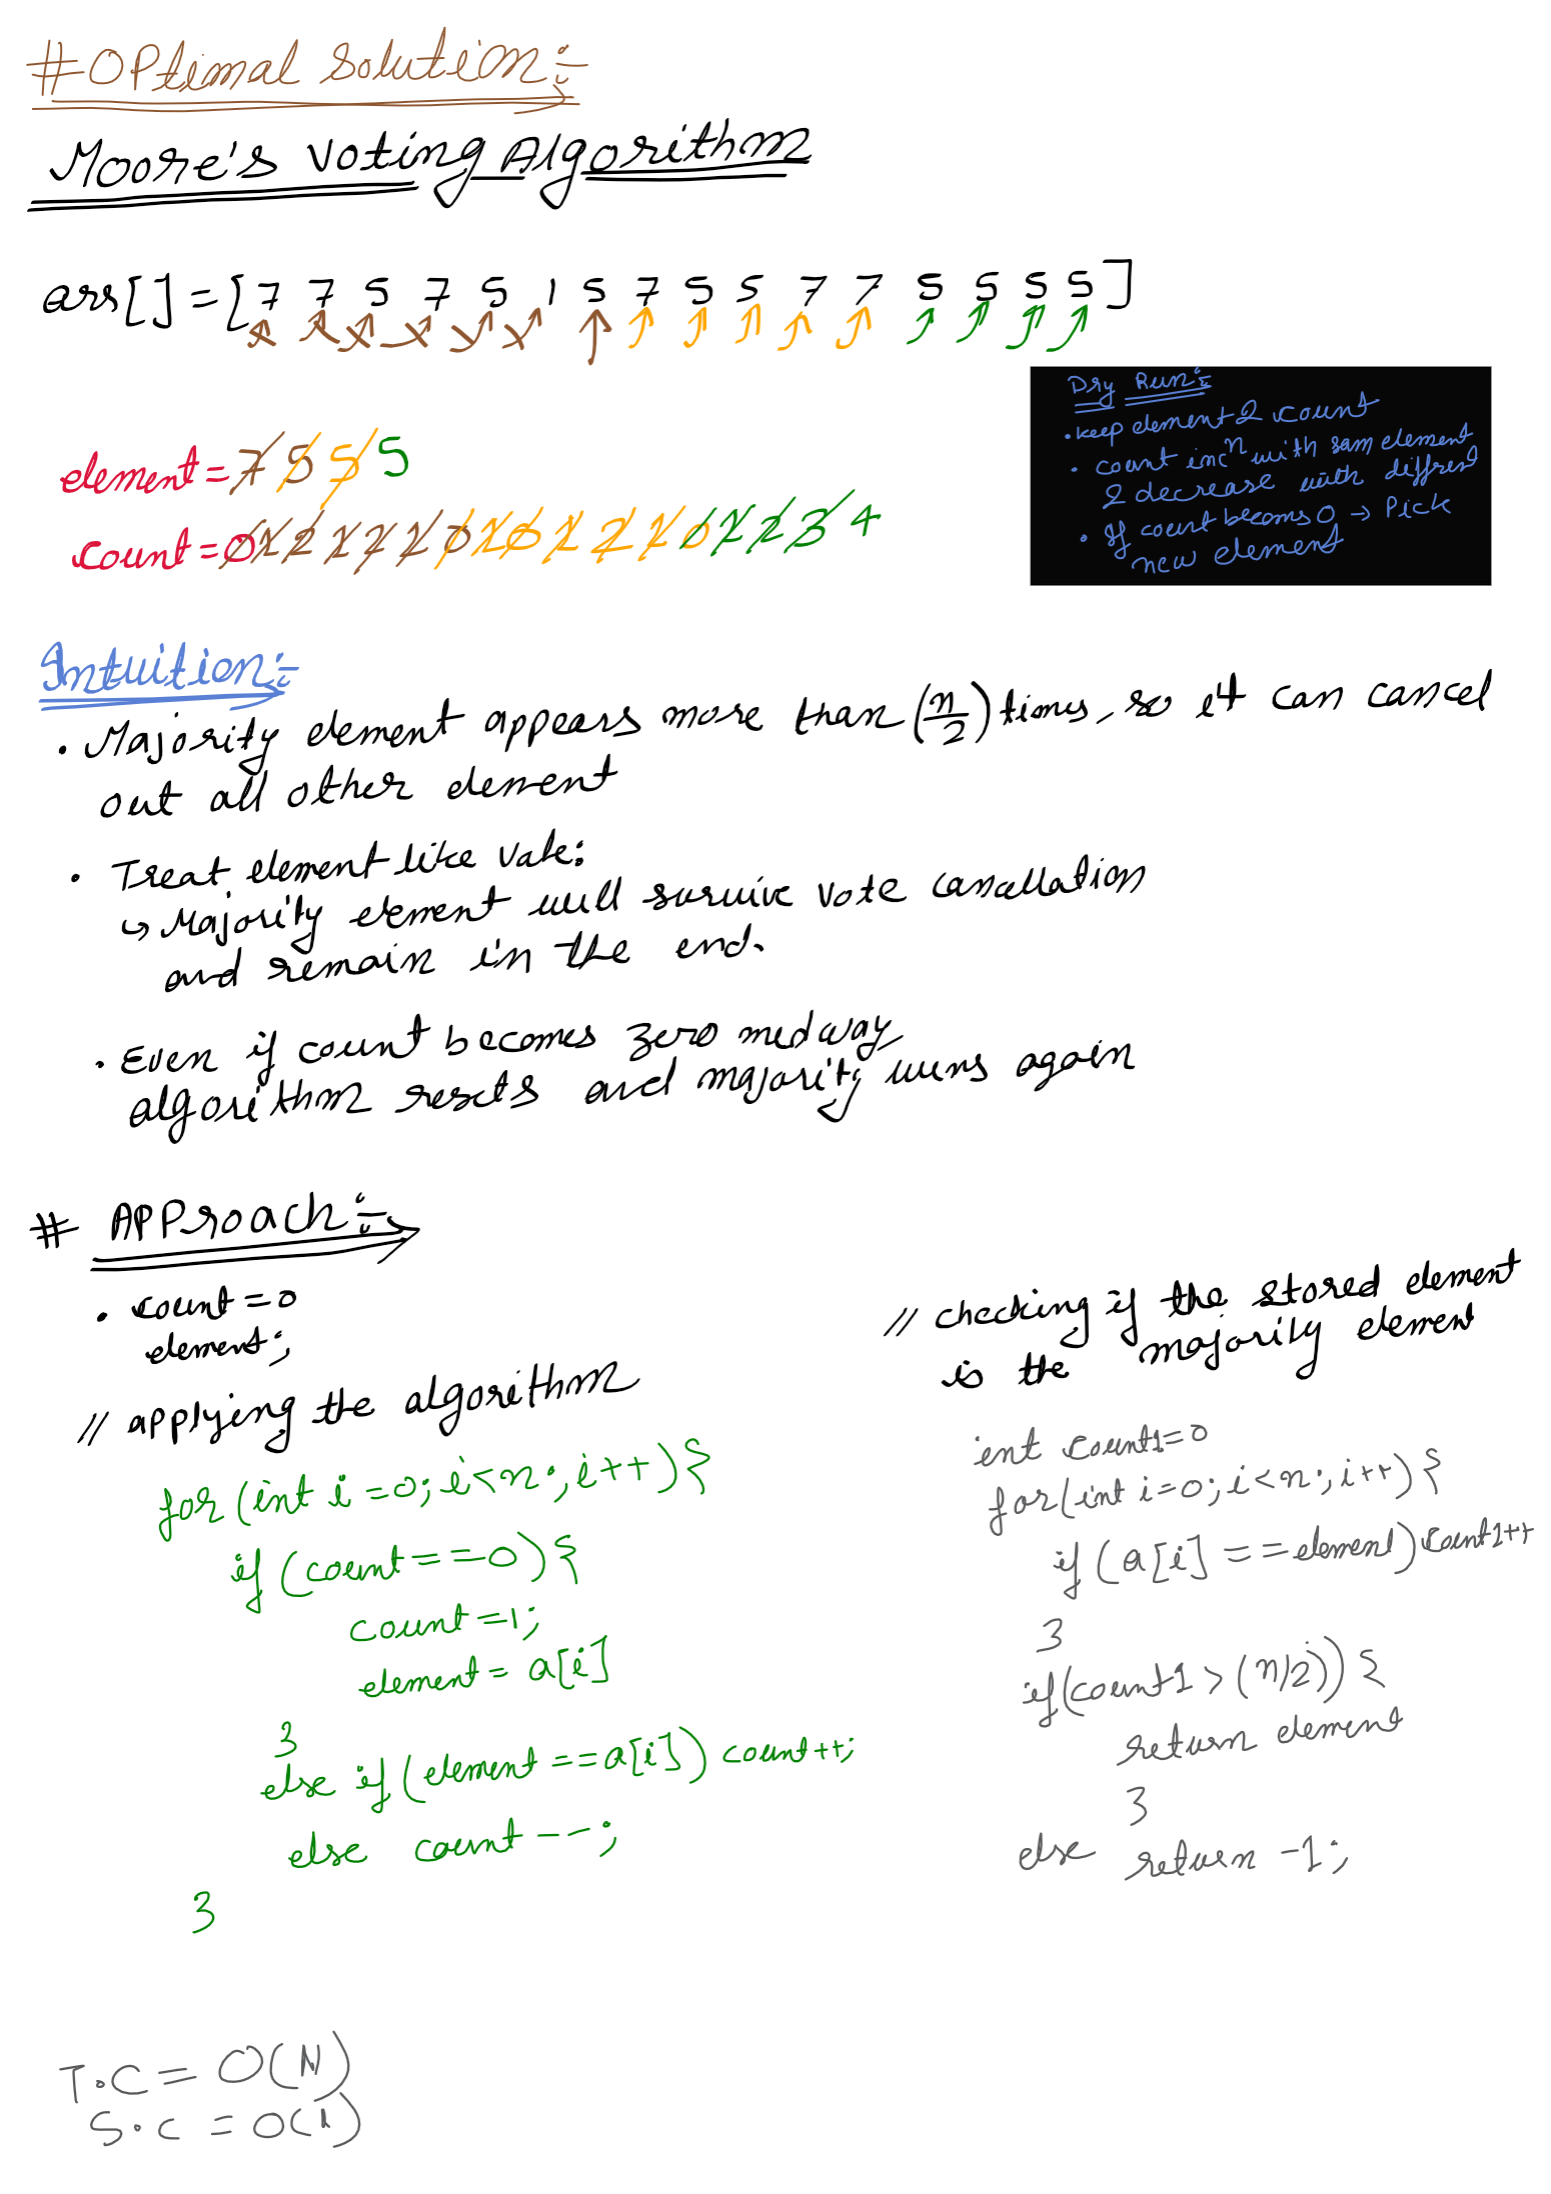 # OPtimal Solution:-
Moore's Voting Algorithm
arr[] = [7 7 5 7 5 1 5 7 5 5 7 7 5 5 5 5]
Dry Run:-
• keep element & count
• count incⁿ with sam element
& decrease with diffrent
• If count becoms 0 → Pick
new element
element = 7 5 5 5
count = 0 1 2 1 2 1 0 1 0 1 2 1 0 1 2 3 4
Intuition:-
• Majority element appears more than (n/2) times, so it can cancel
out all other element
• Treat element like vote:
↳ Majority element will survive vote cancellation
and remain in the end.
• Even if count becomes zero midway
algorithm resets and majority wins again
# APProach:-
• count = 0
element;
// applying the algorithm
for (int i = 0; i < n; i++) {
if (count == 0) {
count = 1;
element = a[i]
}
else if (element == a[i]) count++;
else count--;
}
// checking if the stored element
is the majority element
int count1 = 0
for (int i = 0; i < n; i++) {
if (a[i] == element) count1++
}
if (count1 > (n/2)) {
return element
}
else return -1;
T.C = O(N)
S.C = O(1)